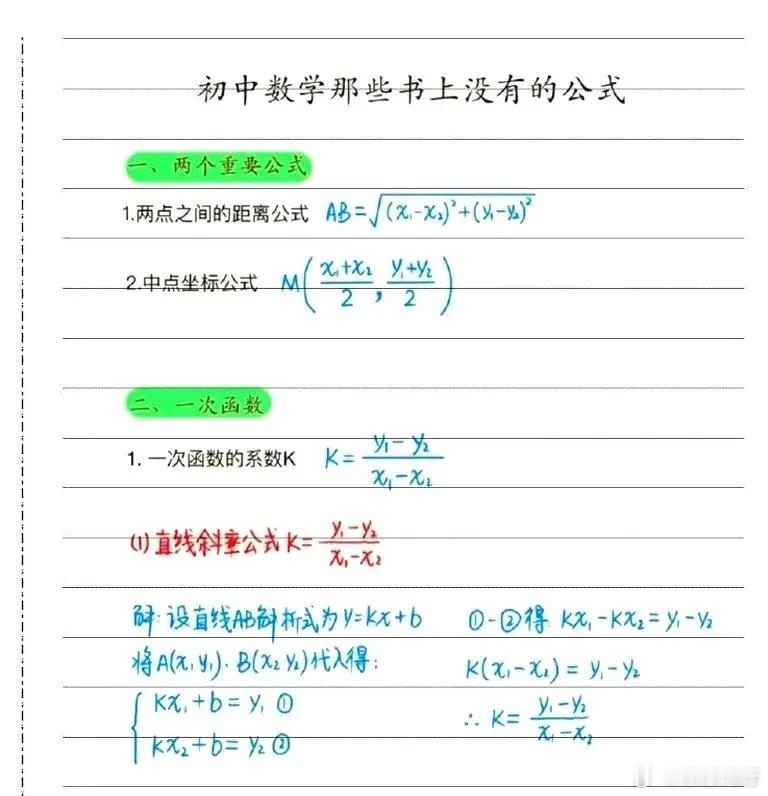 初中数学那些书上没有的公式
一、两个重要公式
1.两点之间的距离公式 AB=√(x₁-x₂)²+(y₁-y₂)²
2.中点坐标公式 M(x₁+x₂/2, y₁+y₂/2)
二、一次函数
1. 一次函数的系数K K=y₁-y₂/x₁-x₂
(1)直线斜垂公式K=y₁-y₂/x₁-x₂
解:设直线AB解析式为y=kx+b
将A(x₁y₁).B(x₂y₂)代入得:
{kx₁+b=y₁①
kx₂+b=y₂②
①-②得 kx₁-kx₂=y₁-y₂
K(x₁-x₂)=y₁-y₂
∴K=y₁-y₂/x₁-x₂